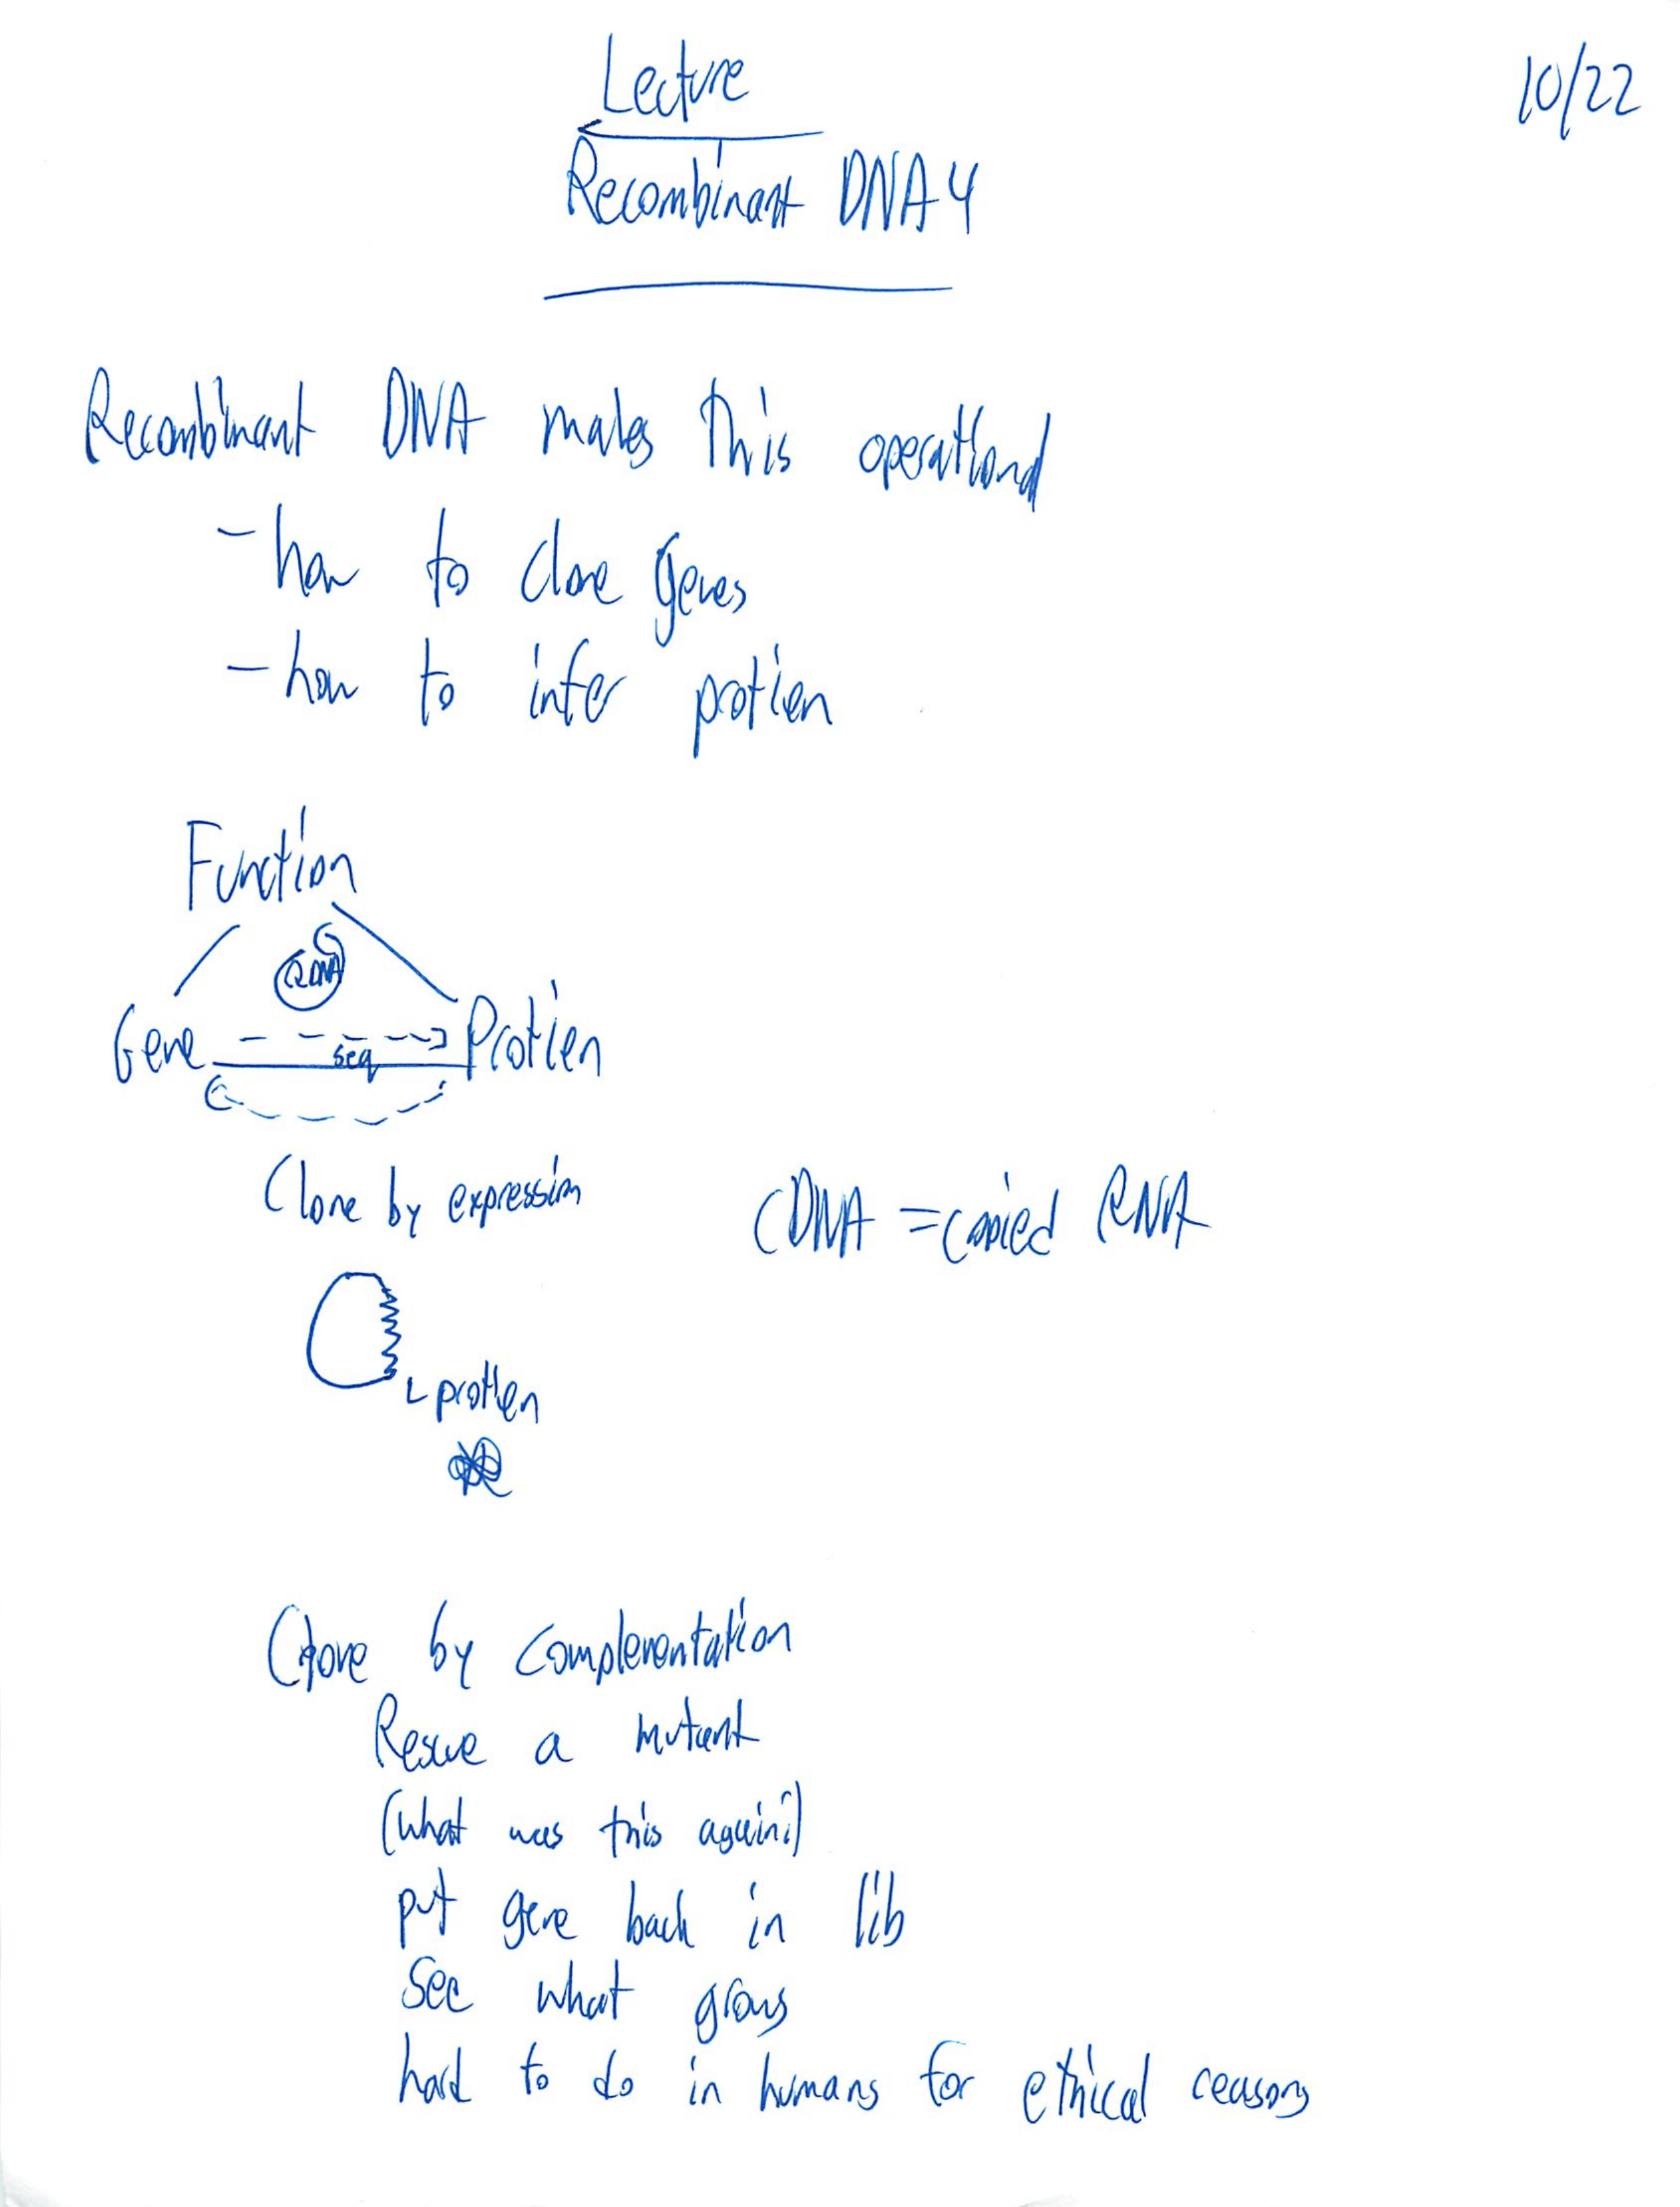 Lecture
10/22
Recombinant DNA 4
Recombinant DNA makes this operational
- how to clone genes
- how to infer protien
Function
RDNA
Gene
seq
Protien
Clone by expression
cDNA = copied RNA
protien
Clone by complementation
Rescue a mutant
(what was this again?)
put gene back in lib
see what grows
hard to do in humans for ethical reasons